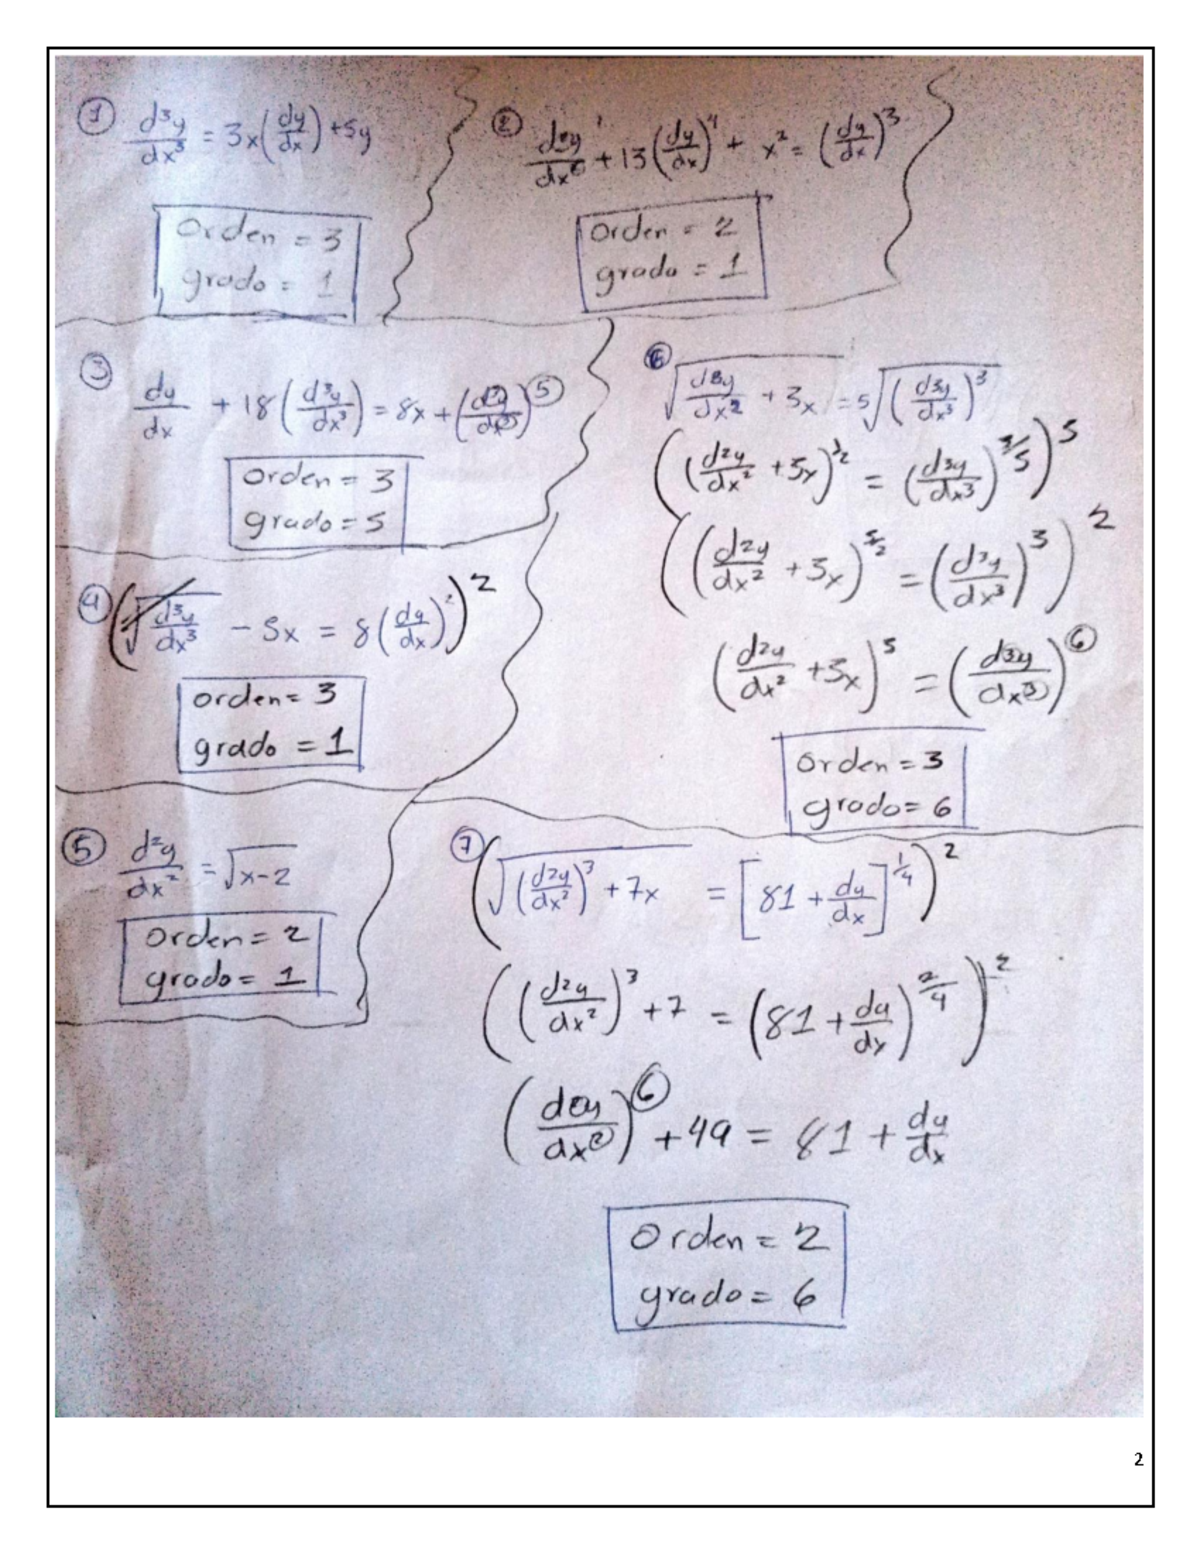 ① d³y/dx³ = 3x(dy/dx) + 5y
Orden = 3
grado = 1
② d²y/dx² + 13(dy/dx)⁴ + x² = (dy/dx)³
Orden = 2
grado = 1
③ dy/dx + 18(d³y/dx³) = 8x + (d³y/dx³)⁵
Orden = 3
grado = 5
④ (√(d³y/dx³) - 5x = 8(dy/dx)²)²
orden = 3
grado = 1
⑤ d²y/dx² = √(x-2)
Orden = 2
grado = 1
⑥ √(d²y/dx² + 3x) = 5√((d³y/dx³)³)
((d²y/dx² + 3x)^½ = (d³y/dx³)^3/5)⁵
((d²y/dx² + 3x)^5/2 = (d³y/dx³)³)²
(d²y/dx² + 3x)⁵ = (d³y/dx³)⁶
Orden = 3
grado = 6
⑦ (√((d²y/dx²)³ + 7x) = [81 + dy/dx]^¼)²
((d²y/dx²)³ + 7 = (81 + dy/dx)^2/4)²
(d²y/dx²)⁶ + 49 = 81 + dy/dx
Orden = 2
grado = 6
2